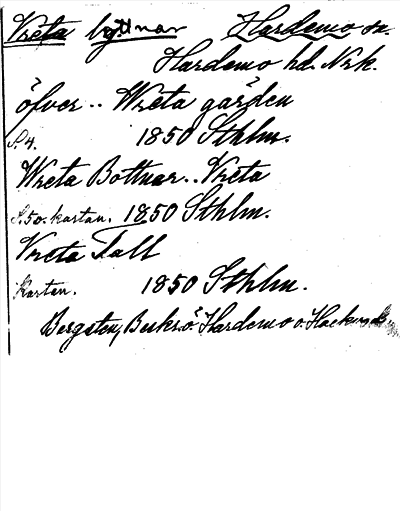 Vreta byttnar Hardemo sn.
Hardemo hd. Nrk.
öfver.. Wreta gärden
S. 4. 1850 Sthlm.
Wreta Bottnar.. Vreta
S. 50. kartan. 1850 Sthlm.
Vreta Tall
Kartan. 1850 Sthlm.
Bergsten, Beskr. ö. Hardemo o.